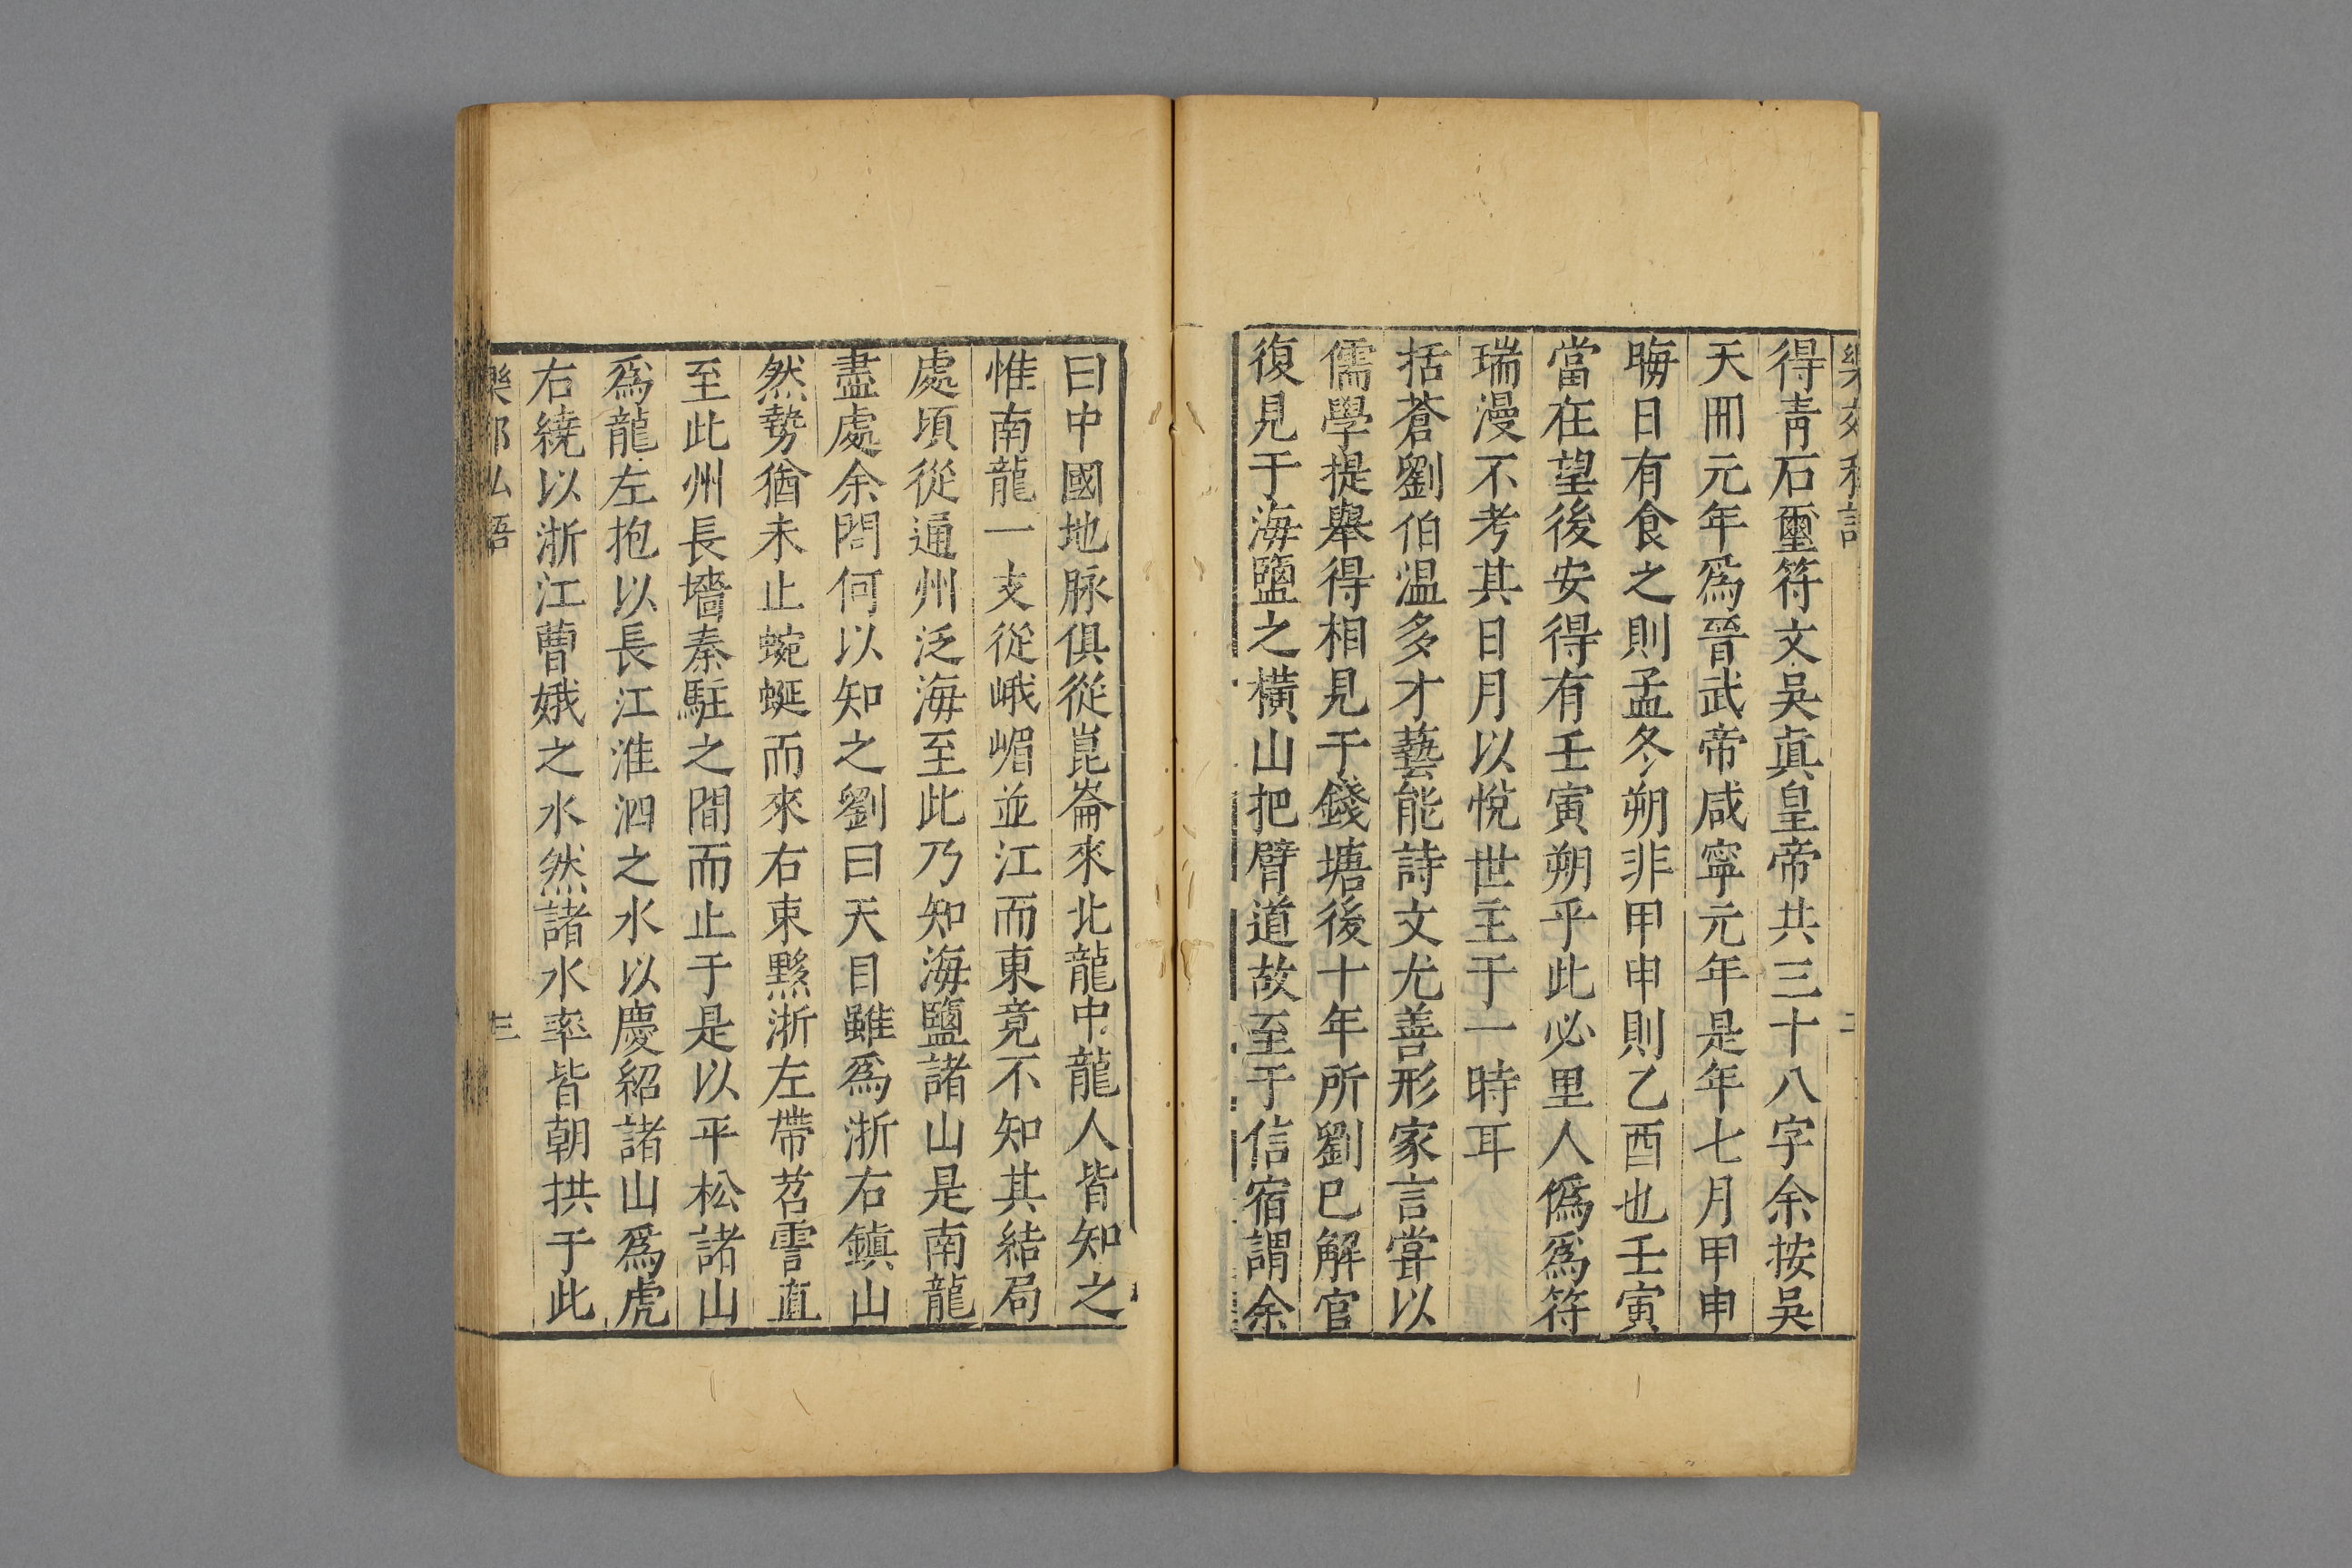 得青石璽符文吳真皇帝共三十八字余按吳
天冊元年爲晉武帝咸寧元年是年七月甲申
晦日有食之則孟冬朔非甲申則乙酉也壬寅
當在望後安得有壬寅朔乎此必里人僞爲符
瑞漫不考其日月以悅世主于一時耳
括蒼劉伯温多才藝能詩文尤善形家言嘗以
儒學提舉得相見于錢塘後十年所劉已解官
復見于海鹽之橫山把臂道故至于信宿謂余
曰中國地脉俱從崑崙來北龍中龍人皆知之
惟南龍一支從峨嵋並江而東竟不知其結局
處頃從通州泛海至此乃知海鹽諸山是南龍
盡處余問何以知之劉曰天目雖爲浙右鎮山
然勢猶未止蜿蜒而來右束黟浙左帶苕霅直
至此州長墻秦駐之間而止于是以平松諸山
爲龍左抱以長江淮泗之水以慶紹諸山爲虎
右繞以浙江曹娥之水然諸水率皆朝拱于此
三